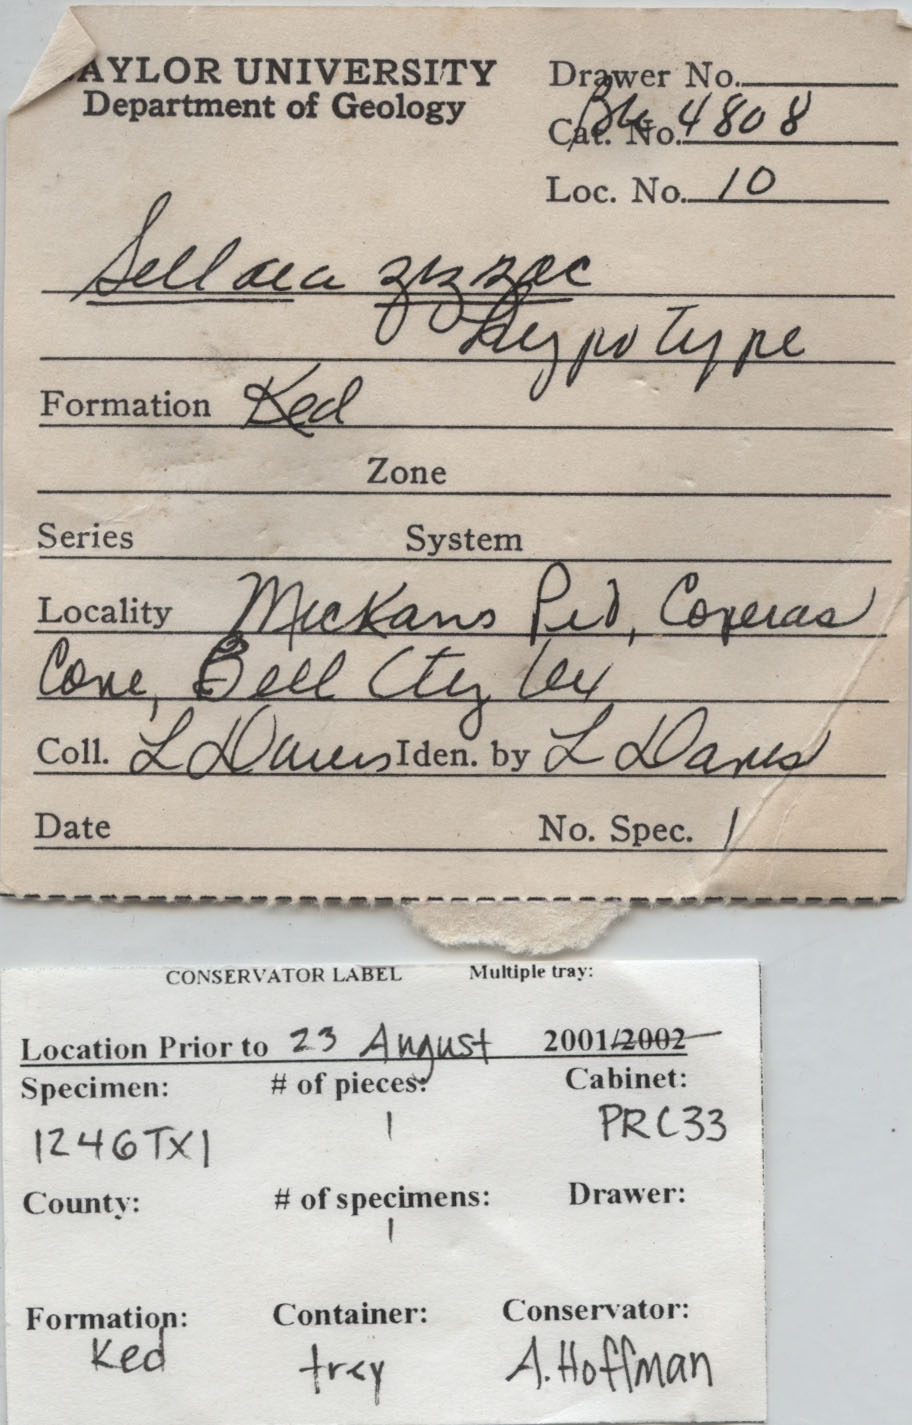 AYLOR UNIVERSITY
Department of Geology
Drawer No.
Cat. No. 4808
Loc. No. 10
Sellaea zizzac
hypotype
Formation Ked
Zone
Series System
Locality Mickans Pid, Coperas
Cove, Bell Cty
Coll. L Davis Iden. by L Davis
Date No. Spec. 1
CONSERVATOR LABEL Multiple tray:
Location Prior to 23 August 2001/2002
Specimen: # of pieces: Cabinet:
1246TX1 1 PRC33
County: # of specimens: Drawer:
1
Formation: Container: Conservator:
Ked tray A. Hoffman